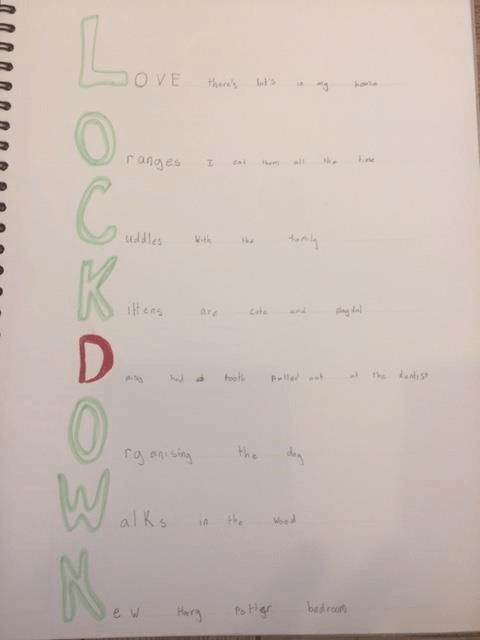 LOVE there's lot's in my house
Oranges I eat them all the time
Cuddles With the family
Kittens are cute and playful
Daisy had a tooth pulled out at the dentist
Organising the day
Walks in the wood
New Harry Potter bedroom